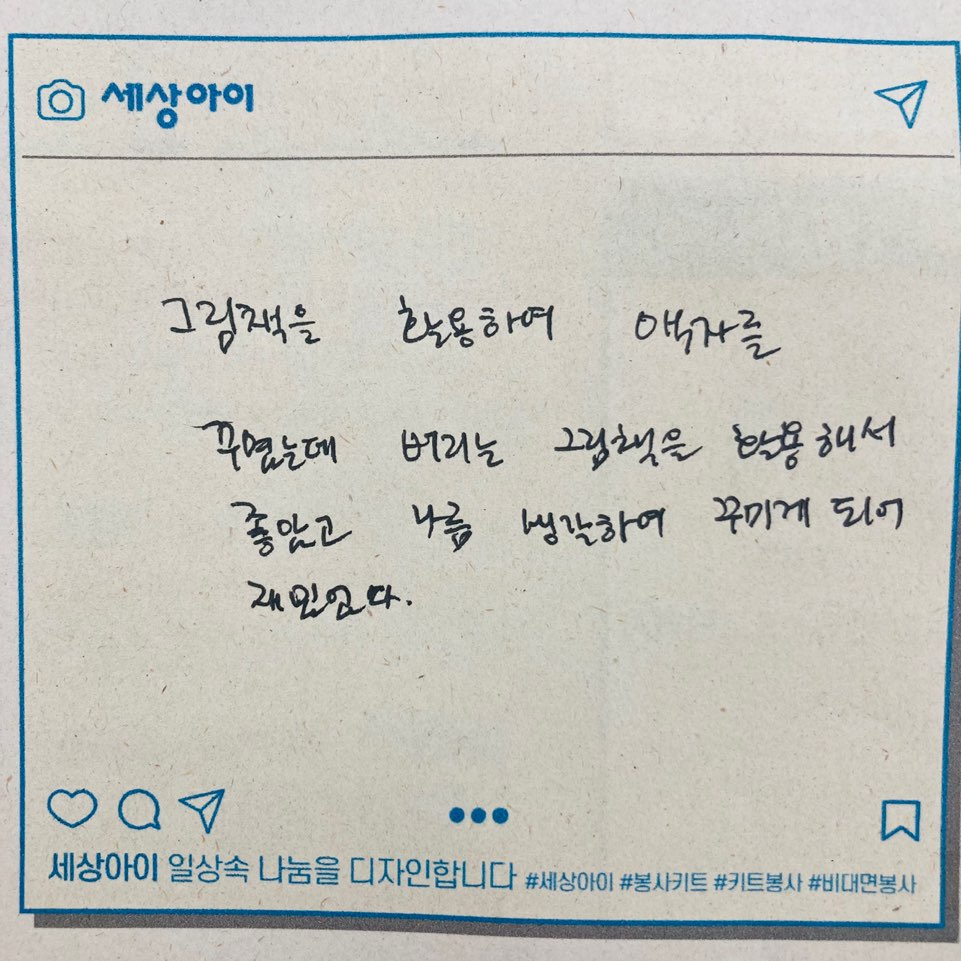 세상아이
그림책을 활용하여 액자를
꾸몄는데 버리는 그림책을 활용해서
좋았고 나름 생각하여 꾸미게 되어
재밌었다.
세상아이 일상속 나눔을 디자인합니다 #세상아이 #봉사키트 #키트봉사 #비대면봉사